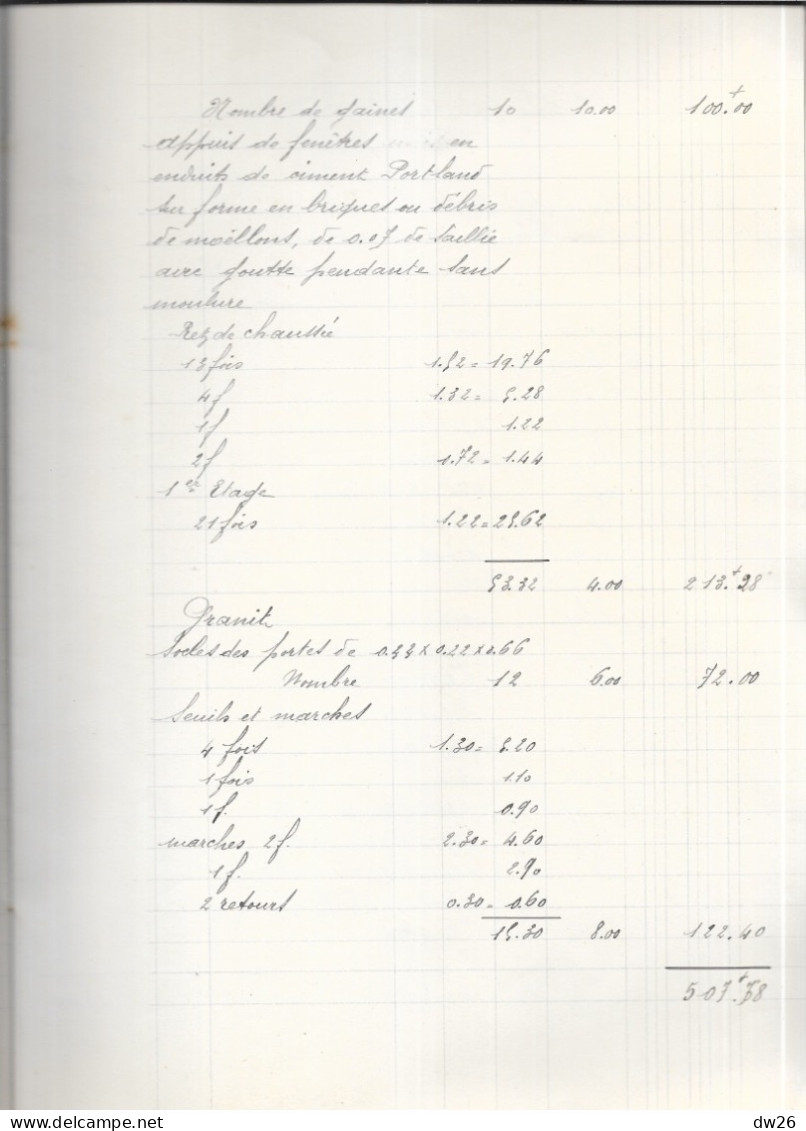 Nombre de gaines 10 10.00 100.00
appuis de fenêtres en
enduits de ciment Portland
sur forme en briques ou débris
de moellons, de 0.07 de saillie
avec goutte pendante sans
moulure
Rez de chaussée
13 fois 1.52 = 19.76
4 f 1.32 = 5.28
1 f 1.22
2 f 1.72 = 1.44
1er Etage
21 fois 1.22 = 25.62
53.32 4.00 213.28
Granit
Socles des portes de 0.33 x 0.22 x 0.66
Nombre 12 6.00 72.00
Seuils et marches
4 fois 1.30 = 5.20
1 fois 1.10
1 f. 0.90
marches 2 f. 2.30 = 4.60
1 f. 2.90
2 retours 0.30 = 0.60
15.30 8.00 122.40
507.78
dw26